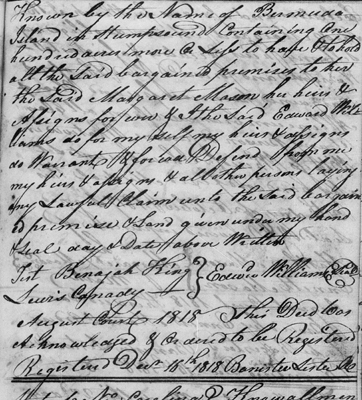 Known by the Name of Bermuda
Island in Stumpsound Containing One
hundred acres more or Less to have & to hold
all the Said bargained premises to her
the Said Margaret Mason her heirs &
Assigns for ever & I the Said Edward Wil
liams do for my self my heirs & assigns
do Warrant & forever Defend from me
my heirs & assigns & all other persons laying
any Lawfull Claim unto the Said bargain
ed premises & Land given under my hand
& Seal day & Date above Written
Test Benajah King } Edward Williams Seal
Lewis Canady
August Court 1818 This Deed was
Acknowledged & Ordered to be Registered
Registered Decr 18th 1818 Banister Lester
No Carolina Know all men